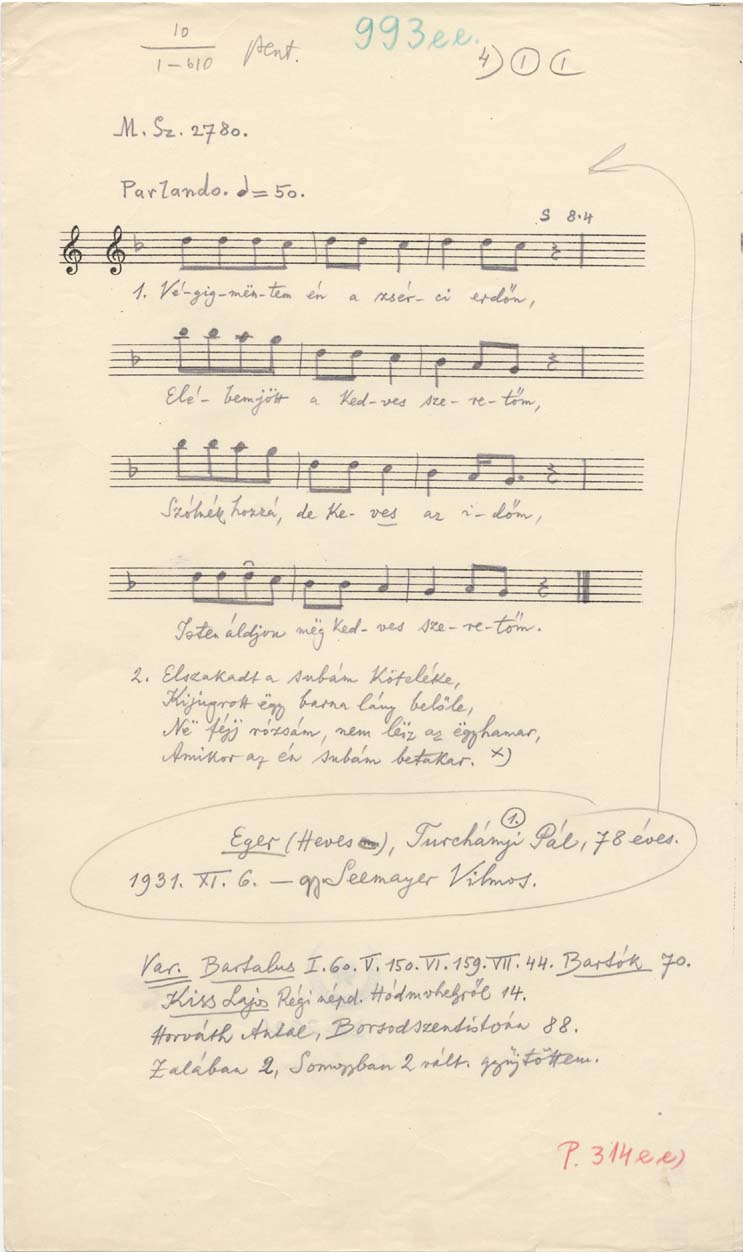 10
1–610 pent.
993ee.
4) 1 1
M. Sz. 2780.
Parlando. ♩= 50.
S 8·4
1. Vé-gig-mën-tem én a zsér-ci erdőn,
Elé-bemjött a Ked-ves sze-re-tőm,
Szólnék hozzá, de Ke-ves az i-dőm,
Isten áldjon mëg Ked-ves sze-re-tőm.
2. Elszakadt a subám Köteléke,
Kijugrott ëgy barna lány belőle,
Në féjj rózsám, nem leiz az ëgyhamar,
Amikor az én subám betakar. x)
Eger (Heves), Turchányi 1. Pál, 78 éves.
1931. XI. 6. – gy. Seemayer Vilmos.
Var. Bartalus I. 60. V. 150. VI. 159. VII. 44. Bartók 70.
Kiss Lajos Régi népd. Hódmvhelyről 14.
Horváth Antal, Borsodszentistván 88.
Zalában 2, Somogyban 2 vált. gyüjtöttem.
P. 314ee)